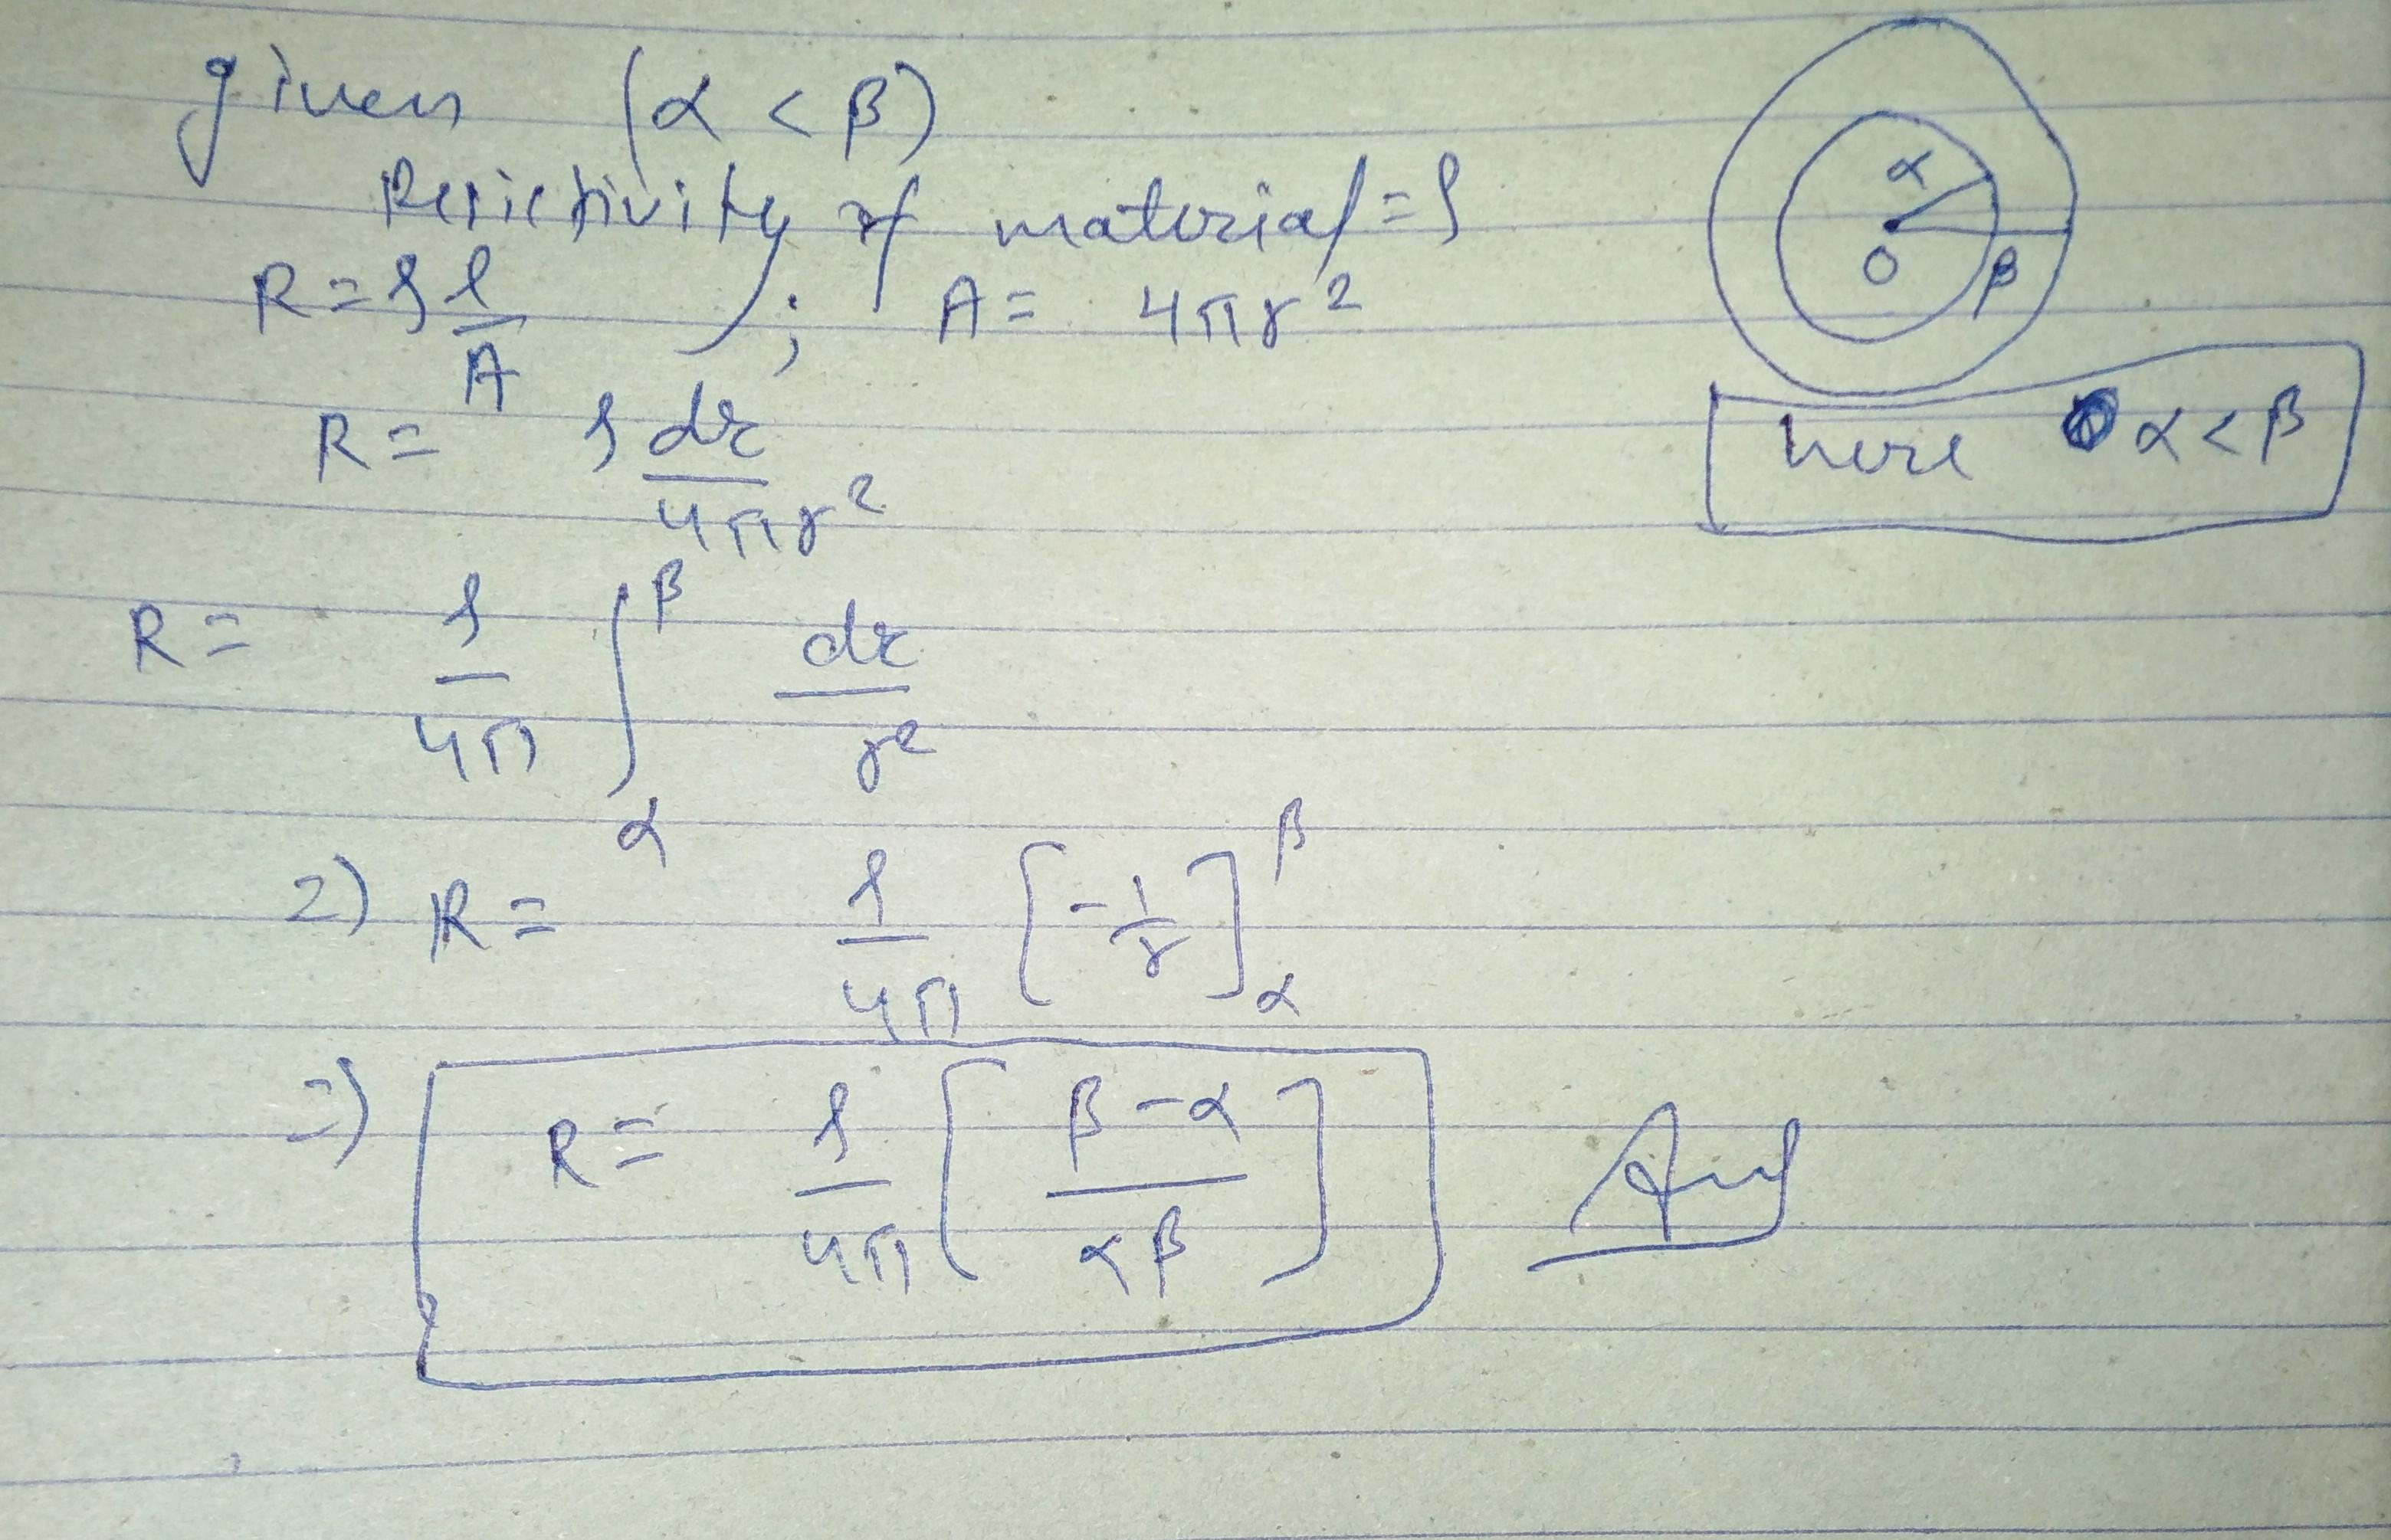 given (α < β)
Resistivity of material = ρ
R = ρ l/A ; A = 4πr²
R = ρ dr/4πr²
R = ρ/4π ∫_α^β dr/r²
=) R = ρ/4π [-1/r]_α^β
=) R = ρ/4π [β-α/αβ] Ans
α
O β
here α < β